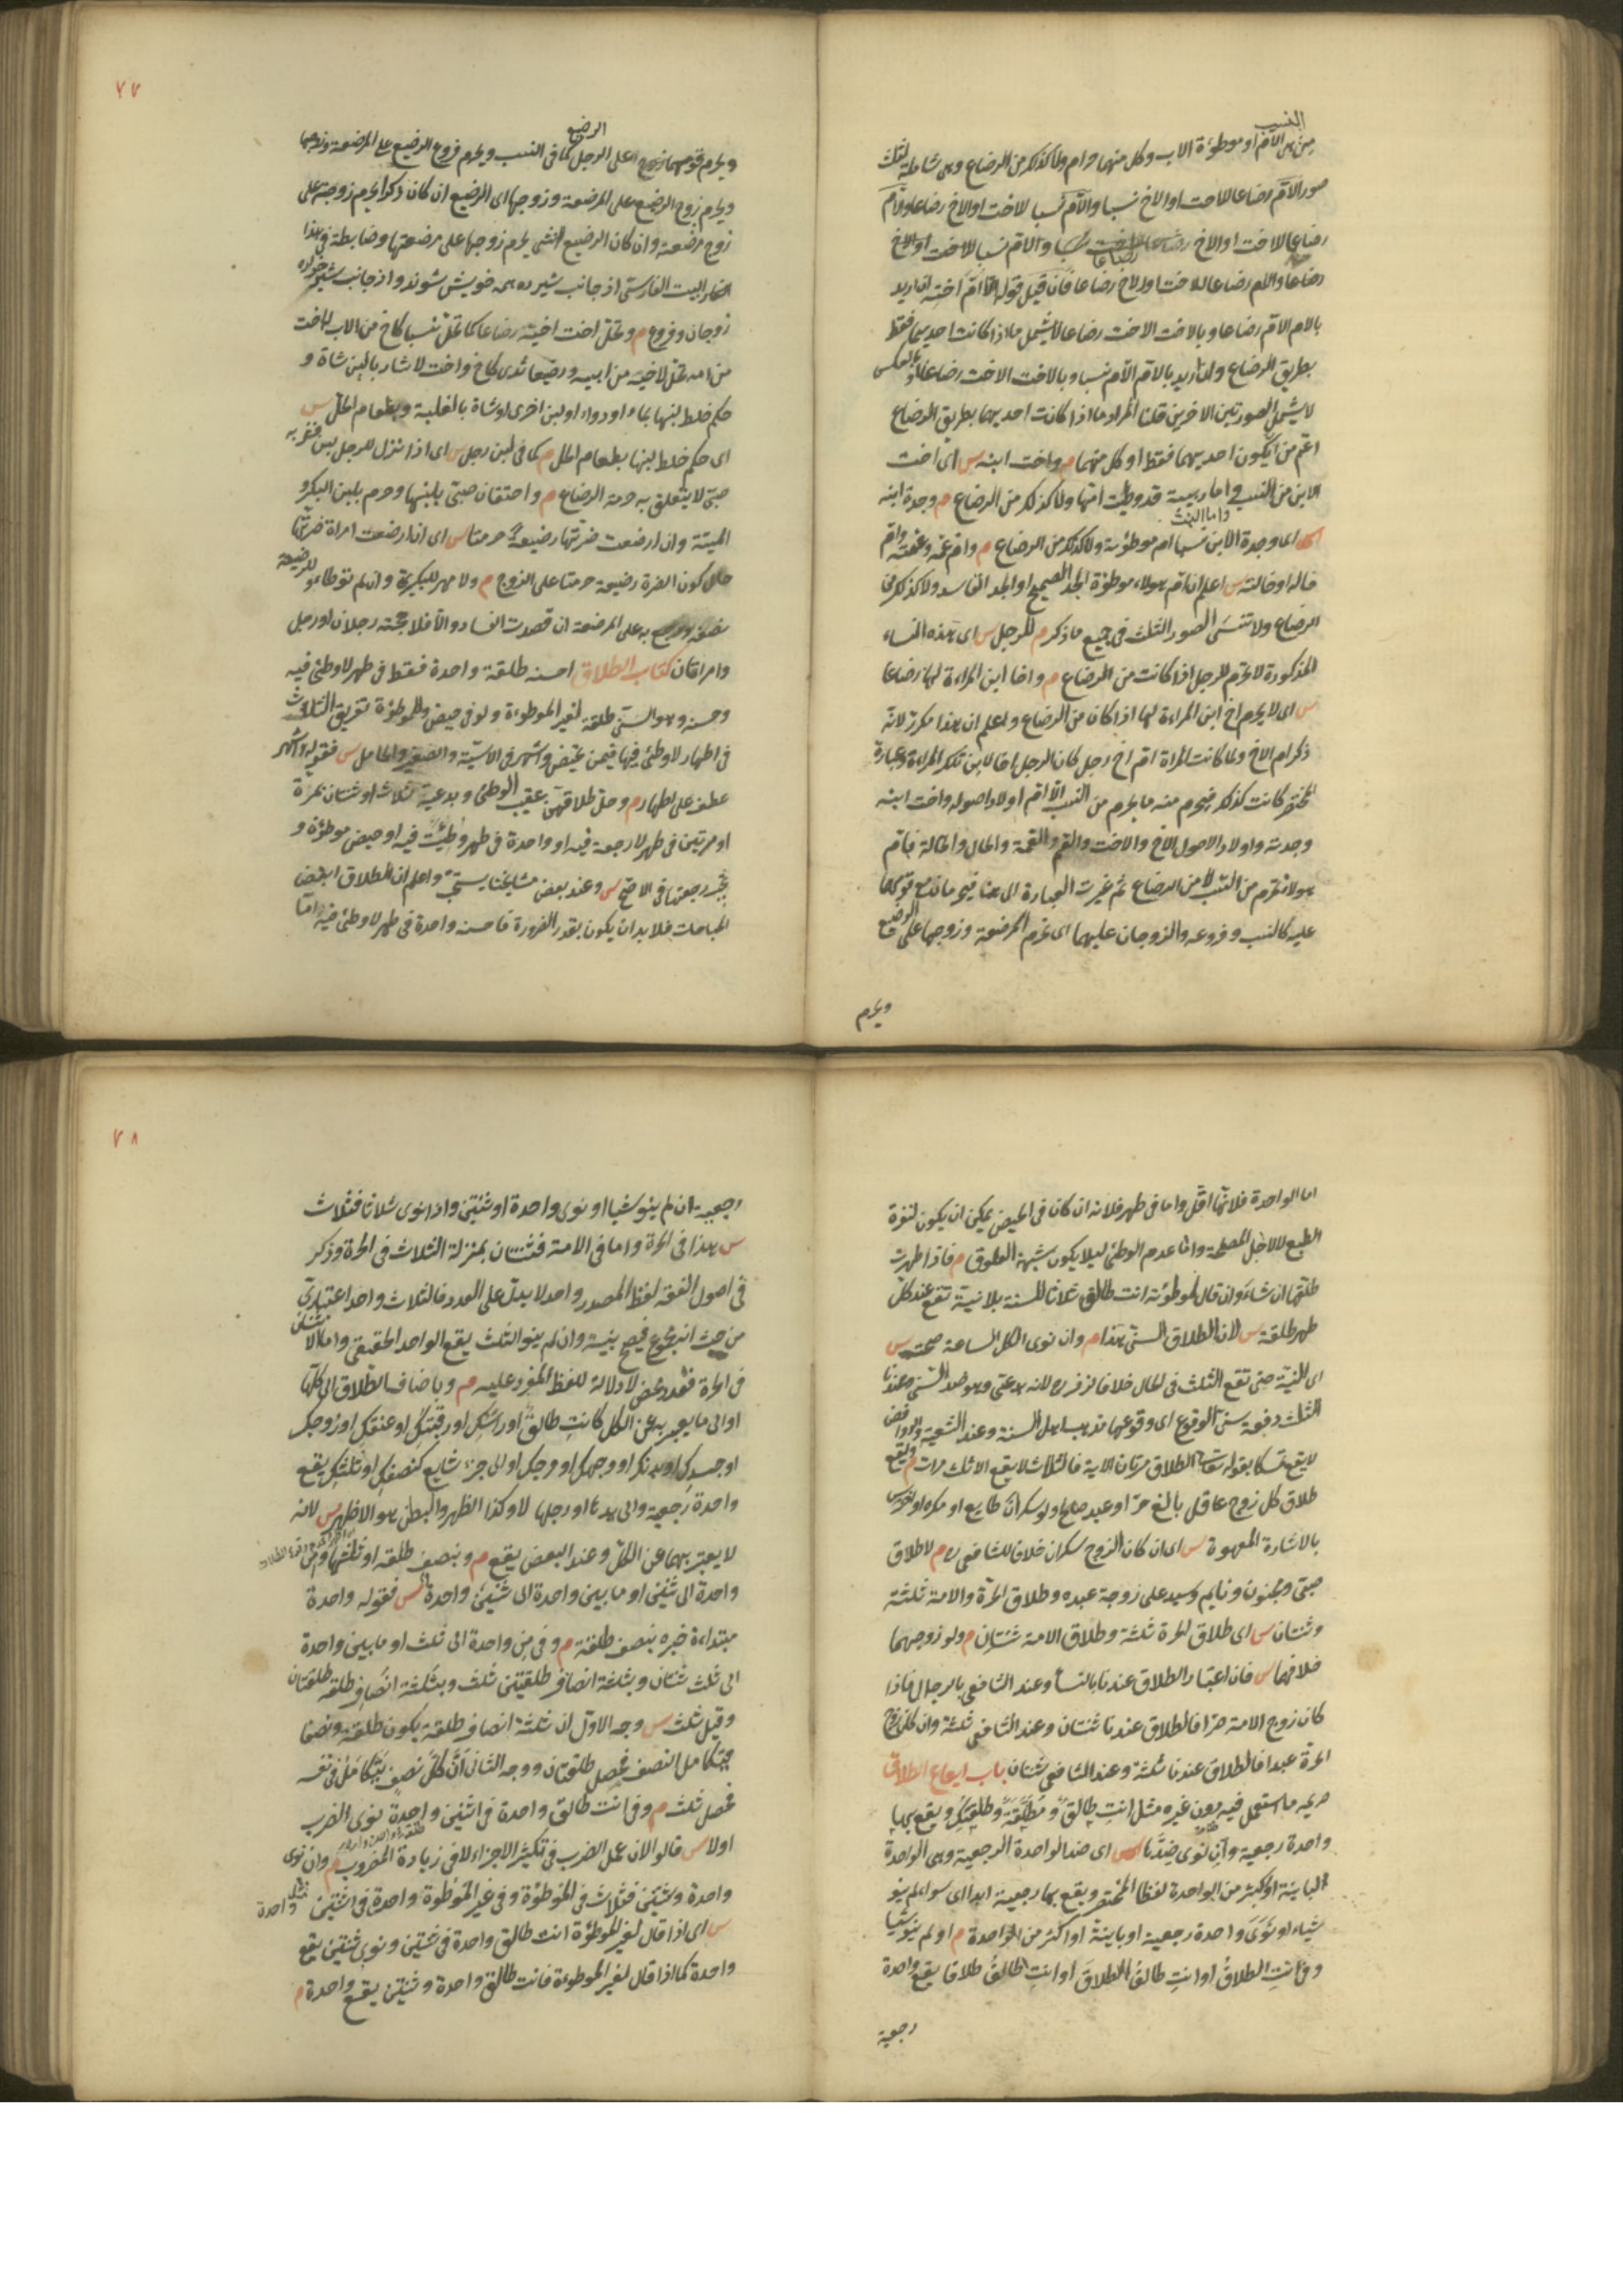 النسب
من هى الام او موطوءة الاب وكل منهما حرام ولا كذلك من الرضاع وهى شاملة لثلث
صور الام رضاعا للاخت او الاخ نسبا والام نسبا للاخت او الاخ رضاعا والام
رضاعا للاخت او الاخ رضاعا
رضاعا والام رضاعا للاخت او للاخ رضاعا فان قيل قوله الا ام اخته ان اريد
بالام الام رضاعا وبالاخت الاخت رضاعا لا يشمل ما اذا كانت احديهما فقط
بطريق الرضاع وان اريد بالام الام نسبا وبالاخت الاخت رضاعا او بالعكس
لا يشمل الصورتين الاخرين قلنا المراد ما اذا كانت احديهما بطريق الرضاع
اعم من ان يكون احديهما فقط او كل منهما م واخت ابنه س اى اخت
الابن من النسب اما ربيبة قد وطئت امها ولا كذلك من الرضاع م وجدة ابنه
واما البنت
س اى وجدة الابن نسبا ام موطوءته ولا كذلك من الرضاع م وام عمه وعمته وام
خاله او خالته س اعلم ان ام هولاء موطوءة الجد الصحيح او الجد الفاسد ولا كذلك من
الرضاع ولا تنسى الصور الثلث فى جميع ما ذكر م للرجل س اى هذه النساء
المذكورة لا تحرم للرجل اذا كانت من الرضاع م واخا ابن المراءة لها رضاعا
س اى لا يحرم اخ ابن المراءة لها اذا كان من الرضاع واعلم ان هذا مكرر لانه
ذكر ام الاخ ولما كانت المراة ام اخ رجل كان الرجل اخا لابن تلك المراءة وعبارة
المختصر كانت كذلك فيحرم منه ما يحرم من النسب الا ام اولاد اصوله واخت ابنه
وجدته واولاد الاصول الاخ والاخت والعم والعمة والخال والخالة فام
هولاء تحرم من النسب لا من الرضاع ثم غيرت العبارة الى هنا فيحرمان مع قومهما
عليه كالنسب وفروعه والزوجان عليهما اى تحرم المرضعة وزوجها على الرضيع
ويحرم
٧٧
الرضيع
ويحرم قومهما على الرجل كما فى النسب ويحرم فروع الرضيع على المرضعة وزوجها
ويحرم زوج الرضيع على المرضعة وزوجها اى الرضيع ان كان ذكرا يحرم زوجته على
زوج مرضعته وان كان الرضيع انثى يحرم زوجها على مرضعتها وضابطة فى هذا
البيت الفارسى از جانب شيرده همه خويش شوند واز جانب شيرخواره
زوجان وفروع م وتحل اخت اخيه رضاعا كما تحل نسبا كاخ من الاب له اخت
من امه تحل لاخيه من ابيه ورضيعا ثدى كاخ واخت لا شاربا لبن شاة و
حكم خلط لبنها بماء او دواء او لبن اخرى او شاة بالغلبة وبطعام الحل س
اى حكم خلط لبنها بطعام الحل م كما فى لبن رجل س اى اذا نزل للرجل لبن فشربه
صبى لا يتعلق به حرمة الرضاع م واحتقان صبى بلبنها وحرم بلبن البكر و
الميتة وان ارضعت ضرتها رضيعة حرمتا س اى ان ارضعت امراة ضرتها
حال كون الضرة رضيعة حرمتا على الزوج م ولا مهر للكبيرة وان لم توطاء وللرضيعة
نصفه ورجع به على المرضعة ان قصدت الفساد والا فلا حجته رجلان او رجل
وامراتان كتاب الطلاق احسنه طلقة واحدة فقط فى طهر لا وطئ فيه
وحسنه وهو السنى طلقة لغير الموطوءة ولو فى حيض وللموطوءة تفريق الثلاث
فى اطهار لا وطئ فيها فيمن تحيض واشهر فى الآسية والصغيرة والحامل س فقوله واشهر
عطف على اطهار م وحل طلاقهن عقيب الوطئ وبدعية ثلاث او ثنتان بمرة
او مرتين فى طهر لا رجعة فيه او واحدة فى طهر وطئت فيه او حيض موطوءة و
تجب رجعتها فى الاصح س وعند بعض مشايخنا يستحب واعلم ان الطلاق ابغض
المباحات فلا بد ان يكون بقدر الضرورة فاحسنه واحدة فى طهر لا وطئ فيه اما
اما الواحدة فلانها اقل واما فى طهر فلانه ان كان فى الحيض يمكن ان يكون لنفرة
الطبع لا لاجل المصلحة واما عدم الوطئ ليلا يكون شبهة العلوق م فاذا طهرت
طلقها ان شاء وان قال لموطوءته انت طالق ثلاثا للسنة بلا نية تقع عند كل
طهر طلقة س لان الطلاق السنى هذا م وان نوى الكل الساعة صحت س
اى النية حتى تقع الثلث فى الحال خلافا لزفر ره لانه بدعى وهو ضد السنى وعندنا
الثلث دفعة سنى الوقوع اى وقوعها مذهب اهل السنة وعند الشيعة والروافض
لا يقع تمسكا بقوله تعالى الطلاق مرتان الاية فالثلاث لا يقع الا ثلث مرات م ويقع
طلاق كل زوج عاقل بالغ حر او عبد صاح او لو سكران طايع او مكره او اخرس
بالاشارة المعهودة س اى ان كان الزوج سكران خلافا للشافعى ره م لا طلاق
صبى ومجنون ونايم وسيد على زوجة عبده وطلاق الحرة والامة ثلثة
وثنتان س اى طلاق الحرة ثلثة وطلاق الامة ثنتان م ولو زوجهما
خلافهما س فان اعتبار الطلاق عندنا بالنسأ وعند الشافعى بالرجال فاذا
كان زوج الامة حرا فالطلاق عندنا ثنتان وعند الشافعى ثلثة وان كان زوج
الحرة عبدا فالطلاق عندنا ثلثة وعند الشافعى ثنتان باب ايقاع الطلاق
صريحه ما استعمل فيه دون غيره مثل انت طالق ومطلقة وطلقتك ويقع بها
واحدة رجعية وان نوى ضدها س اى ضد الواحدة الرجعية وهى الواحدة
الباينة او اكثر من الواحدة لفظا المختصر ويقع بها رجعية ابدا اى سواء لم ينو
شياء او نوى واحدة رجعية او باينة او اكثر من الواحدة م او لم ينو شيا
وفى انت الطلاق او انت طالق الطلاق او انت طالق طلاقا يقع واحدة
رجعية
٧٨
رجعية ان لم ينو شيا او نوى واحدة او ثنتين واذا نوى ثلاثا فثلاث
س هذا فى الحرة واما فى الامة فثنتان بمنزلة الثلاث فى الحرة وذكر
فى اصول الفقه لفظ المصدر واحد لا يدل على العدد فالثلاث واحد اعتبارى
من حيث انه مجموع فيصح نيته وان لم ينو الثلث يقع الواحد الحقيقى واما الاثنتان
فى الحرة فعدد محض لا دلالة للفظ المفرد عليه م وباضافة الطلاق الى كلها
او الى ما يعبر به عن الكل كانت طالق او راسك او رقبتك او عنقك او روحك
او جسدك او بدنك او وجهك او فرجك او الى جزء شايع كنصفك او ثلثك يقع
واحدة رجعية والى يدها او رجلها لا وكذا الظهر والبطن هو الاظهر س لانه
لا يعبر بهما عن الكل وعند البعض يقع م وبنصف طلقة او ثلثها ومن
واحدة الى ثنتين او ما بين واحدة الى ثنتين واحدة س فقوله واحدة
مبتداءة خبره بنصف طلقة م وفى من واحدة الى ثلث او ما بين واحدة
الى ثلث ثنتان وبثلثة انصاف طلقتين ثلث وبثلثة انصاف طلقة طلقتان
وقيل ثلث س وجه الاول ان ثلثة انصاف طلقة يكون طلقة ونصفا
فيتكامل النصف فحصل طلقتان ووجه الثانى ان كل نصف يتكامل فى نفسه
فحصل ثلث م وفى انت طالق واحدة فى اثنتين واحدة نوى الضرب
اولا س قالوا لان عمل الضرب فى تكثير الاجزاء لا فى زيادة المضروب م وان نوى
واحدة وثنتين فثلاث فى الموطوءة وفى غير الموطوءة واحدة فى اثنتين مثل واحدة
س اى اذا قال لغير الموطوءة انت طالق واحدة فى ثنتين ونوى ثنتين يقع
واحدة كما اذا قال لغير الموطوءة فانت طالق واحدة وثنتين يقع واحدة م